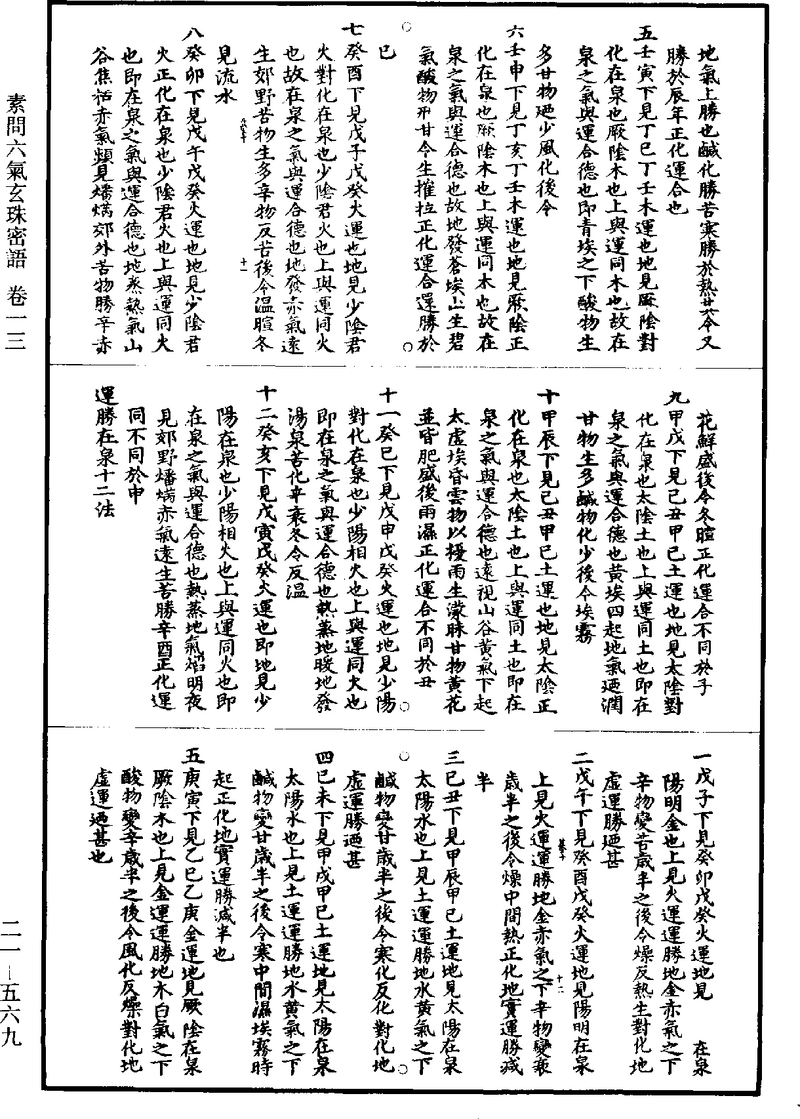 素問六氣玄珠密語　卷一三
二一—五六九
地氣上勝也鹹化勝苦寒勝於熱甘令又
勝於辰年正化運合也
五壬寅下見丁巳丁壬木運也地見厥陰對
化在泉也厥陰木也上與運同木也故在
泉之氣與運合德也即青埃之下酸物生
多甘物廼少風化後令
六壬申下見丁亥丁壬木運也地見厥陰正
化在泉也厥陰木也上與運同木也故在
泉之氣與運合德也故地發蒼埃山生碧
氣酸物卅甘令生摧拉正化運合還勝於
巳
七癸酉下見戊子戊癸火運也地見少陰君
火對化在泉也少陰君火也上與運同火
也故在泉之氣與運合德也地發赤氣遠
生郊野苦物生多辛物反苦後令溫暄冬
見流水
八癸卯下見戊午戊癸火運也地見少陰君
火正化在泉也少陰君火也上與運同火
也即在泉之氣與運合德也地蒸熱氣山
谷焦枯赤氣頻見燔焫郊外苦物勝辛赤
花鮮盛後令冬暄正化運合不同於子
九甲戌下見己丑甲己土運也地見太陰對
化在泉也太陰土也上與運同土也即在
泉之氣與運合德也黃埃四起地氣廼潤
甘物生多鹹物化少後令埃霧
十甲辰下見己丑甲己土運也地見太陰正
化在泉也太陰土也上與運同土也即在
泉之氣與運合德也遠視山谷黃氣下起
太虛埃昏雲物以擾雨生濛昧甘物黃花
並皆肥盛後雨濕正化運合不同於丑
十一癸巳下見戊申戊癸火運也地見少陽
對化在泉也少陽相火也上與運同火也
即在泉之氣與運合德也熱蒸地暖地發
湯泉苦化辛衰冬令反溫
十二癸亥下見戊寅戊癸火運也即地見少
陽在泉也少陽相火也上與運同火也即
在泉之氣與運合德也熱蒸地氣焰明夜
見郊野燔焫赤氣遠生苦勝辛酉正化運
同不同於申
運勝在泉十二法
一戊子下見癸卯戊癸火運地見　　在泉
陽明金也上見火運運勝地金赤氣之下
辛物變苦歲半之後令燥反熱生對化地
虛運勝廼甚
二戊午下見癸酉戊癸火運地見陽明在泉
上見火運運勝地金赤氣之下辛物變衰
歲半之後令燥中間熱正化地實運勝減
半
三己丑下見甲辰甲己土運地見太陽在泉
太陽水也上見土運運勝地水黃氣之下
鹹物變甘歲半之後令寒化反化對化地
虛運勝廼甚
四己未下見甲戌甲己土運地見太陽在泉
太陽水也上見土運運勝地水黃氣之下
鹹物變甘歲半之後令寒中間濕埃霧時
起正化地實運勝減半也
五庚寅下見乙巳乙庚金運地見厥陰在泉
厥陰木也上見金運運勝地木白氣之下
酸物變辛歲半之後令風化反燥對化地
虛運廼甚也